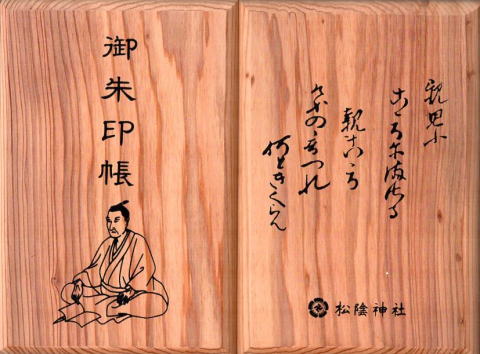 御朱印帳
親思ふ
こゝろにまさる
親こゝろ
けふの音つれ
何ときくらん
松陰神社